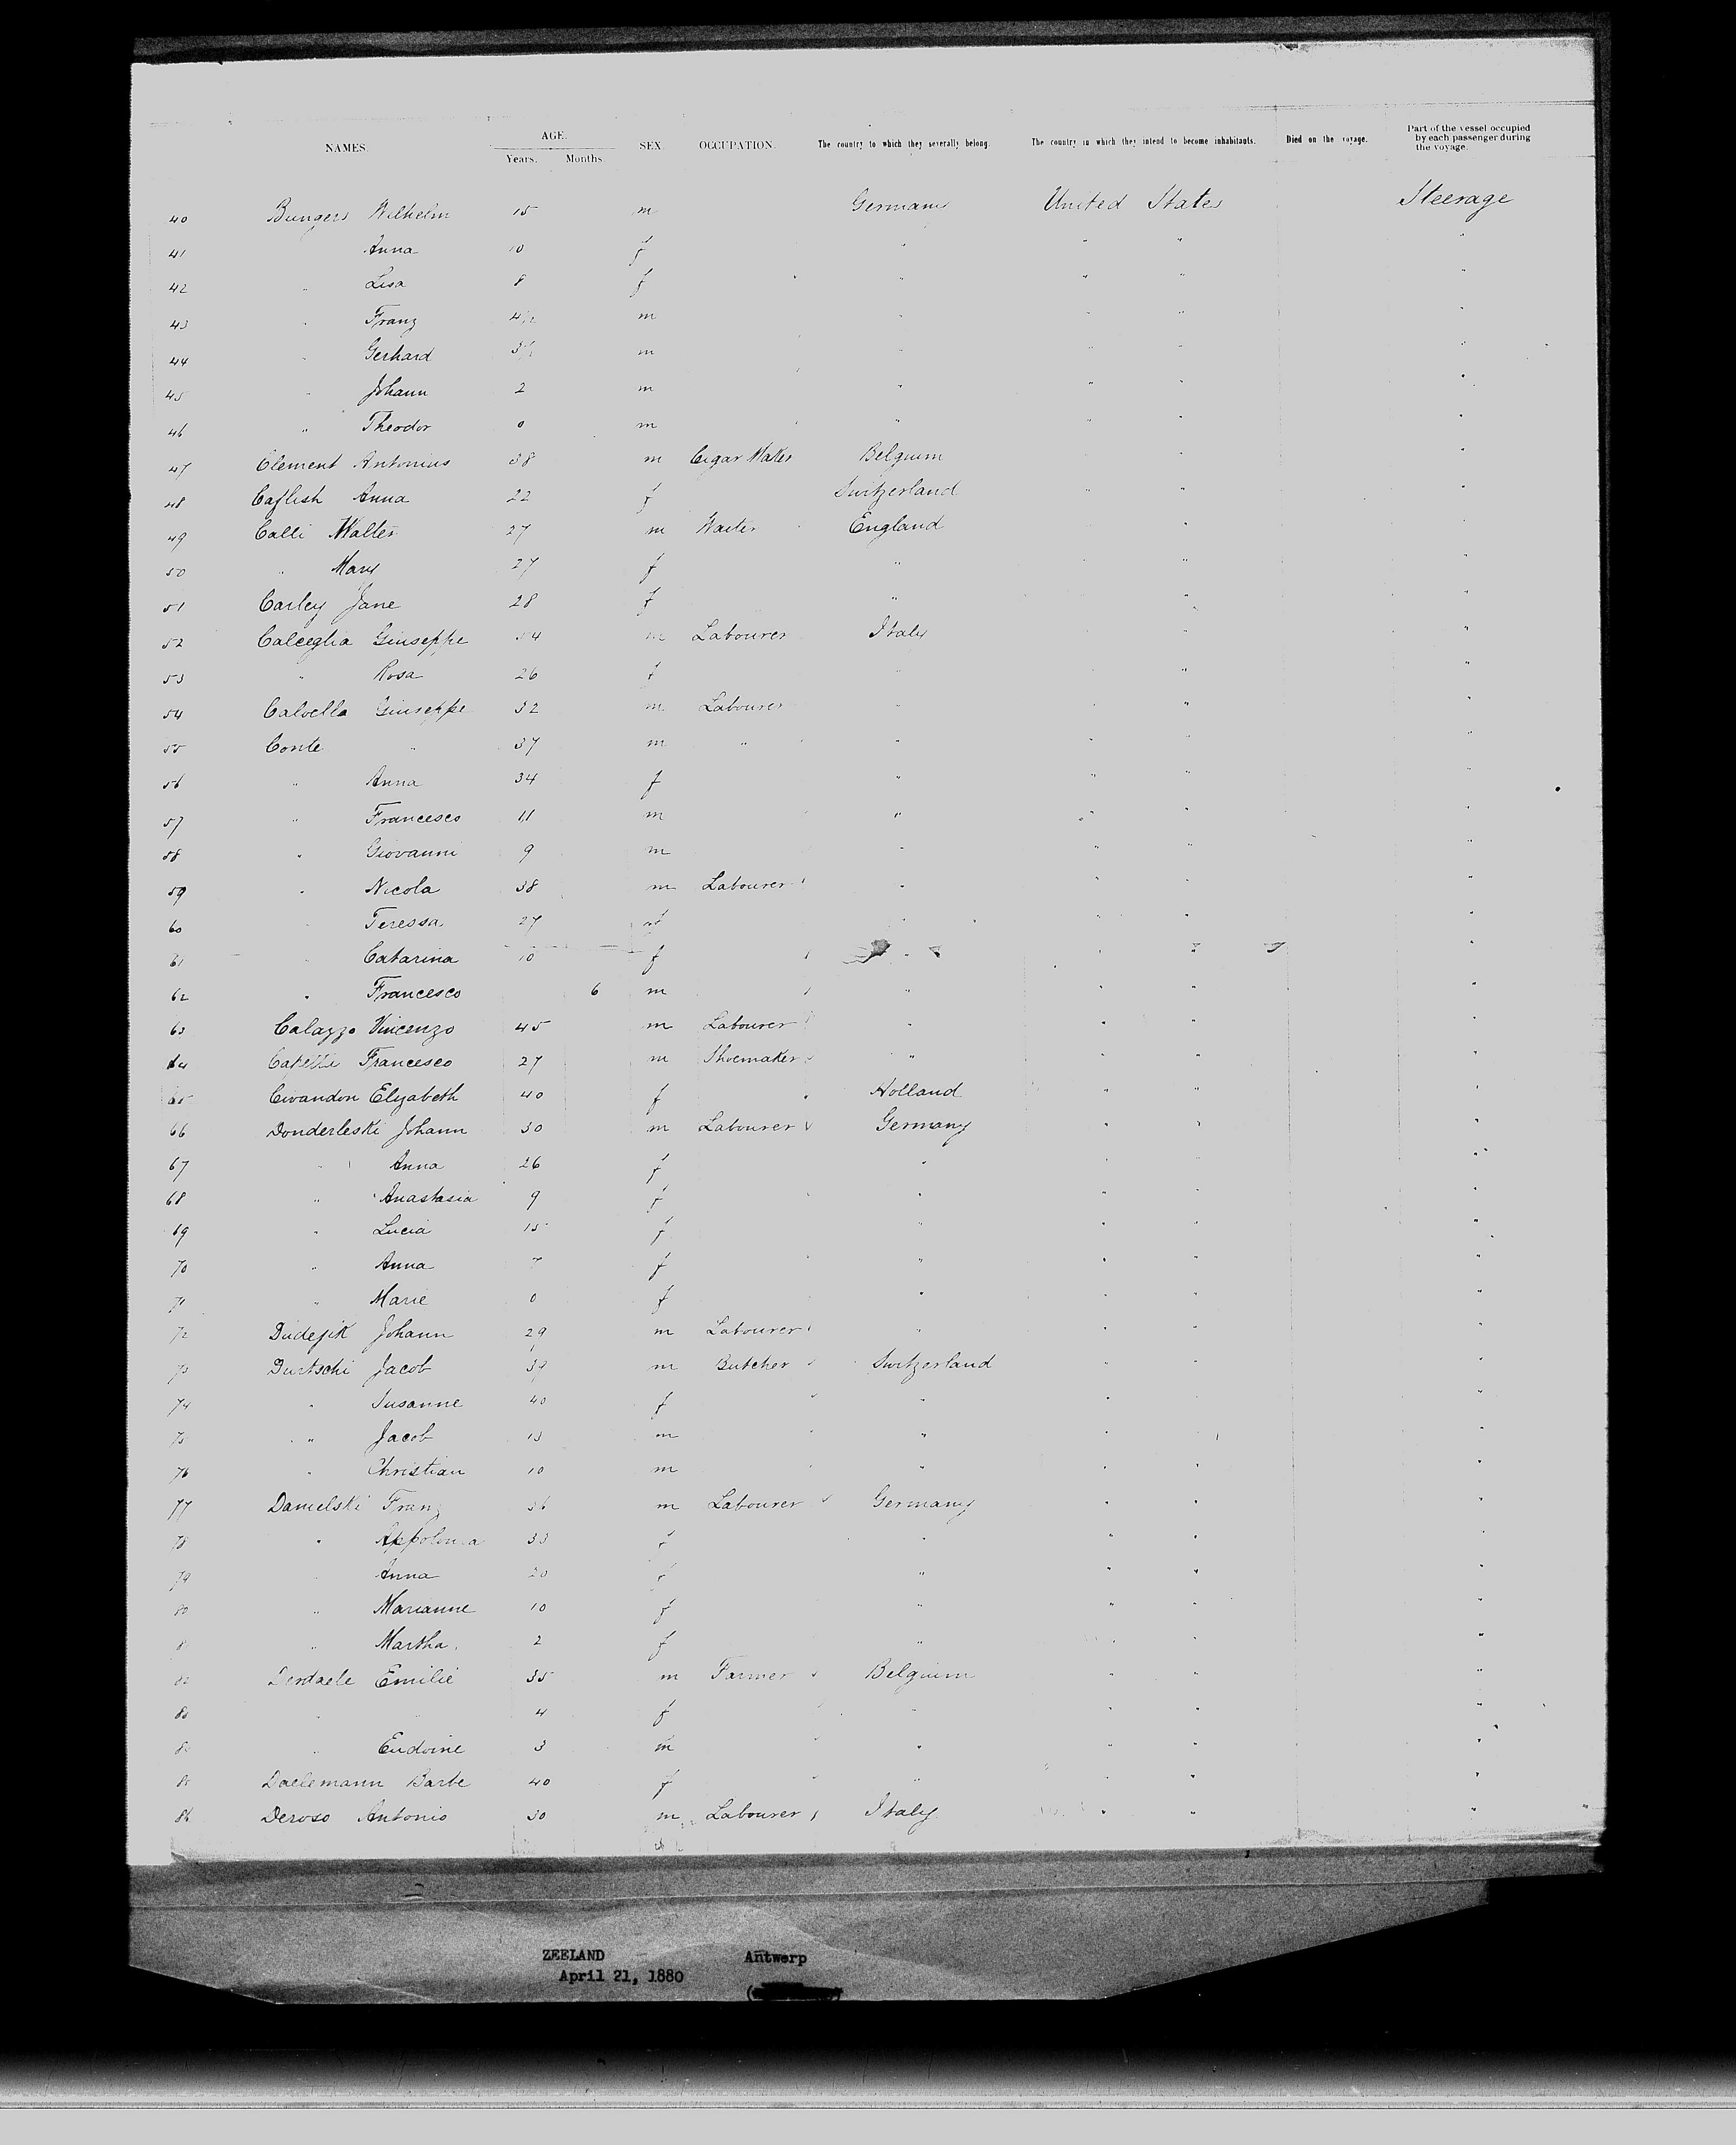 NAMES. AGE. Years. Months SEX OCCUPATION. The country to which they severally belong. The country in which they intend to become inhabitants. Died on the voyage. Part of the vessel occupied by each passenger during the voyage.
40 Bungers Wilhelm 15 m Germany United States Steerage
41 Anna 10 f " " " "
42 " Lisa 8 f " " " "
43 " Franz 4½ m " " " "
44 " Gerhard m " " " "
45 " Johann 2 m " " " "
46 " Theodor 0 m " " " "
47 Clement Antonius 38 m Cigar Maker Belgium " "
48 Caflish Anna 22 f Switzerland " " "
49 Calli Walter 27 m Waiter England " "
50 " Mary 27 f " " "
51 Carley Jane 28 f " " "
52 Calceglia Giuseppe m Labourer Italy " "
53 " Rosa 26 f " " "
54 Calvella Giuseppe 32 m Labourer " " "
55 Conte " 37 m " " " " "
56 " Anna 34 f " " " "
57 " Francesco 11 m " " " "
58 " Giovanni 9 m " " " "
59 " Nicola 38 m Labourer " " " "
60 " Teressa 27 f " " " "
61 " Catarina 10 f " " " "
62 " Francesco 6 m " " " "
63 Calazzo Vincenzo 45 m Labourer " " " "
64 Francesco 27 m Shoemaker " " " "
65 Elizabeth 40 f Holland " " "
66 Donderleski Johann 30 m Labourer Germany " " "
67 " Anna 26 f " " " "
68 " Anastasia 9 f " " " "
69 " Lucia 15 f " " " "
70 " Anna 7 f " " " "
71 " Marie 0 f " " " "
72 Johann 29 m Labourer " " " "
73 Durtschi Jacob 39 m Butcher Switzerland " " "
74 " Susanne 40 f " " " "
75 " Jacob 13 m " " " "
76 " Christian 10 m " " " "
77 Danielski Franz 36 m Labourer Germany " " "
78 " Appolonia 33 f " " " "
79 " Anna 20 f " " " "
80 " Marianne 10 f " " " "
8 " Martha 2 f " " "
82 Emilie 35 m Farmer Belgium " " "
83 " " 4 f " " " "
84 " Eudoine 3 m " " " "
85 Daelemann Barbe 40 f " " " "
86 Deroso Antonio 30 m Labourer Italy " " "
ZEELAND Antwerp
April 21, 1880